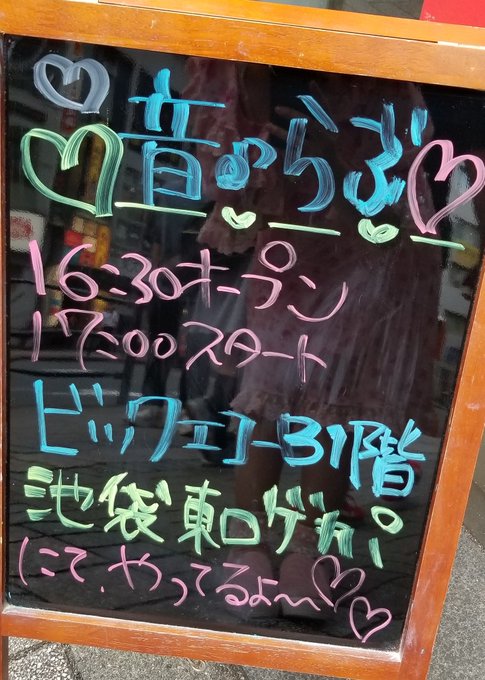 音のらぶ
16:30オープン
17:00スタート
ビックエコーB1階
池袋東口ゲカパ
にて、やってるよ〜